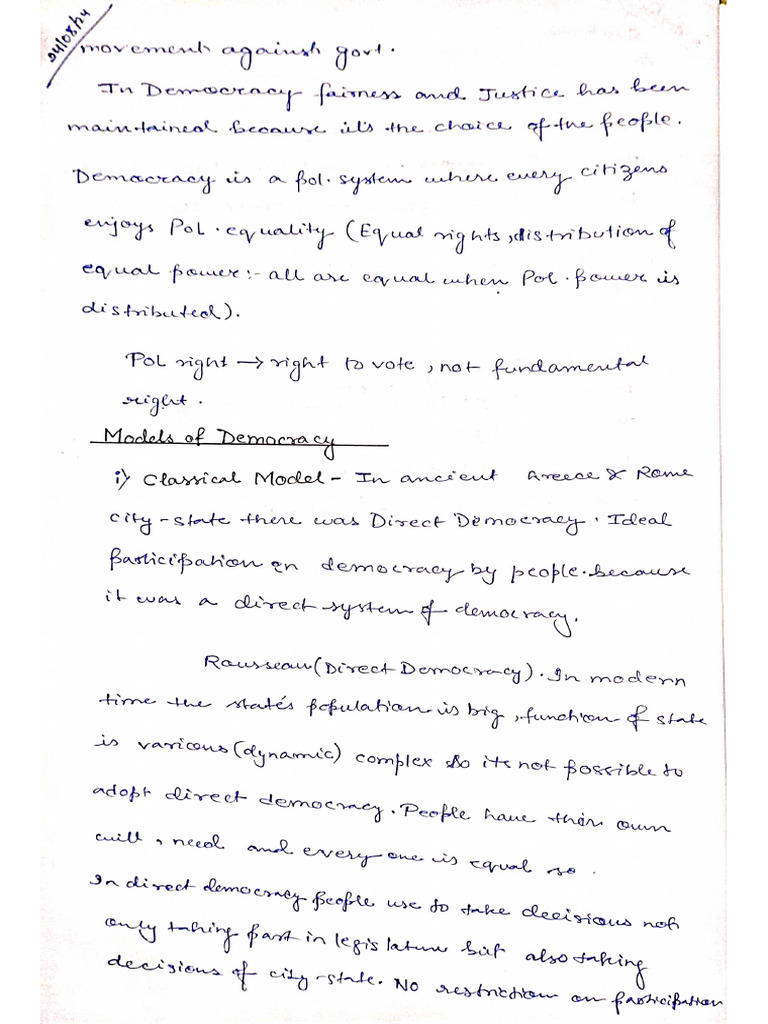 04/08/24
movements against govt.
In Democracy fairness and Justice has been
maintained because it's the choice of the people.
Democracy is a pol. system where every citizens
enjoys Pol. equality (Equal rights, distribution of
equal power:- all are equal when Pol. power is
distributed).
Pol right → right to vote, not fundamental
right.
Models of Democracy
i) Classical Model - In ancient Greece & Rome
city-state there was Direct Democracy. Ideal
participation in democracy by people. because
it was a direct system of democracy.
Rousseau (Direct Democracy). In modern
time the state's population is big, function of state
is various (dynamic) complex so its not possible to
adopt direct democracy. People have their own
will, need and every one is equal so.
In direct democracy people use to take decisions not
only taking part in legislature but also taking
decisions of city-state. No restriction on participation